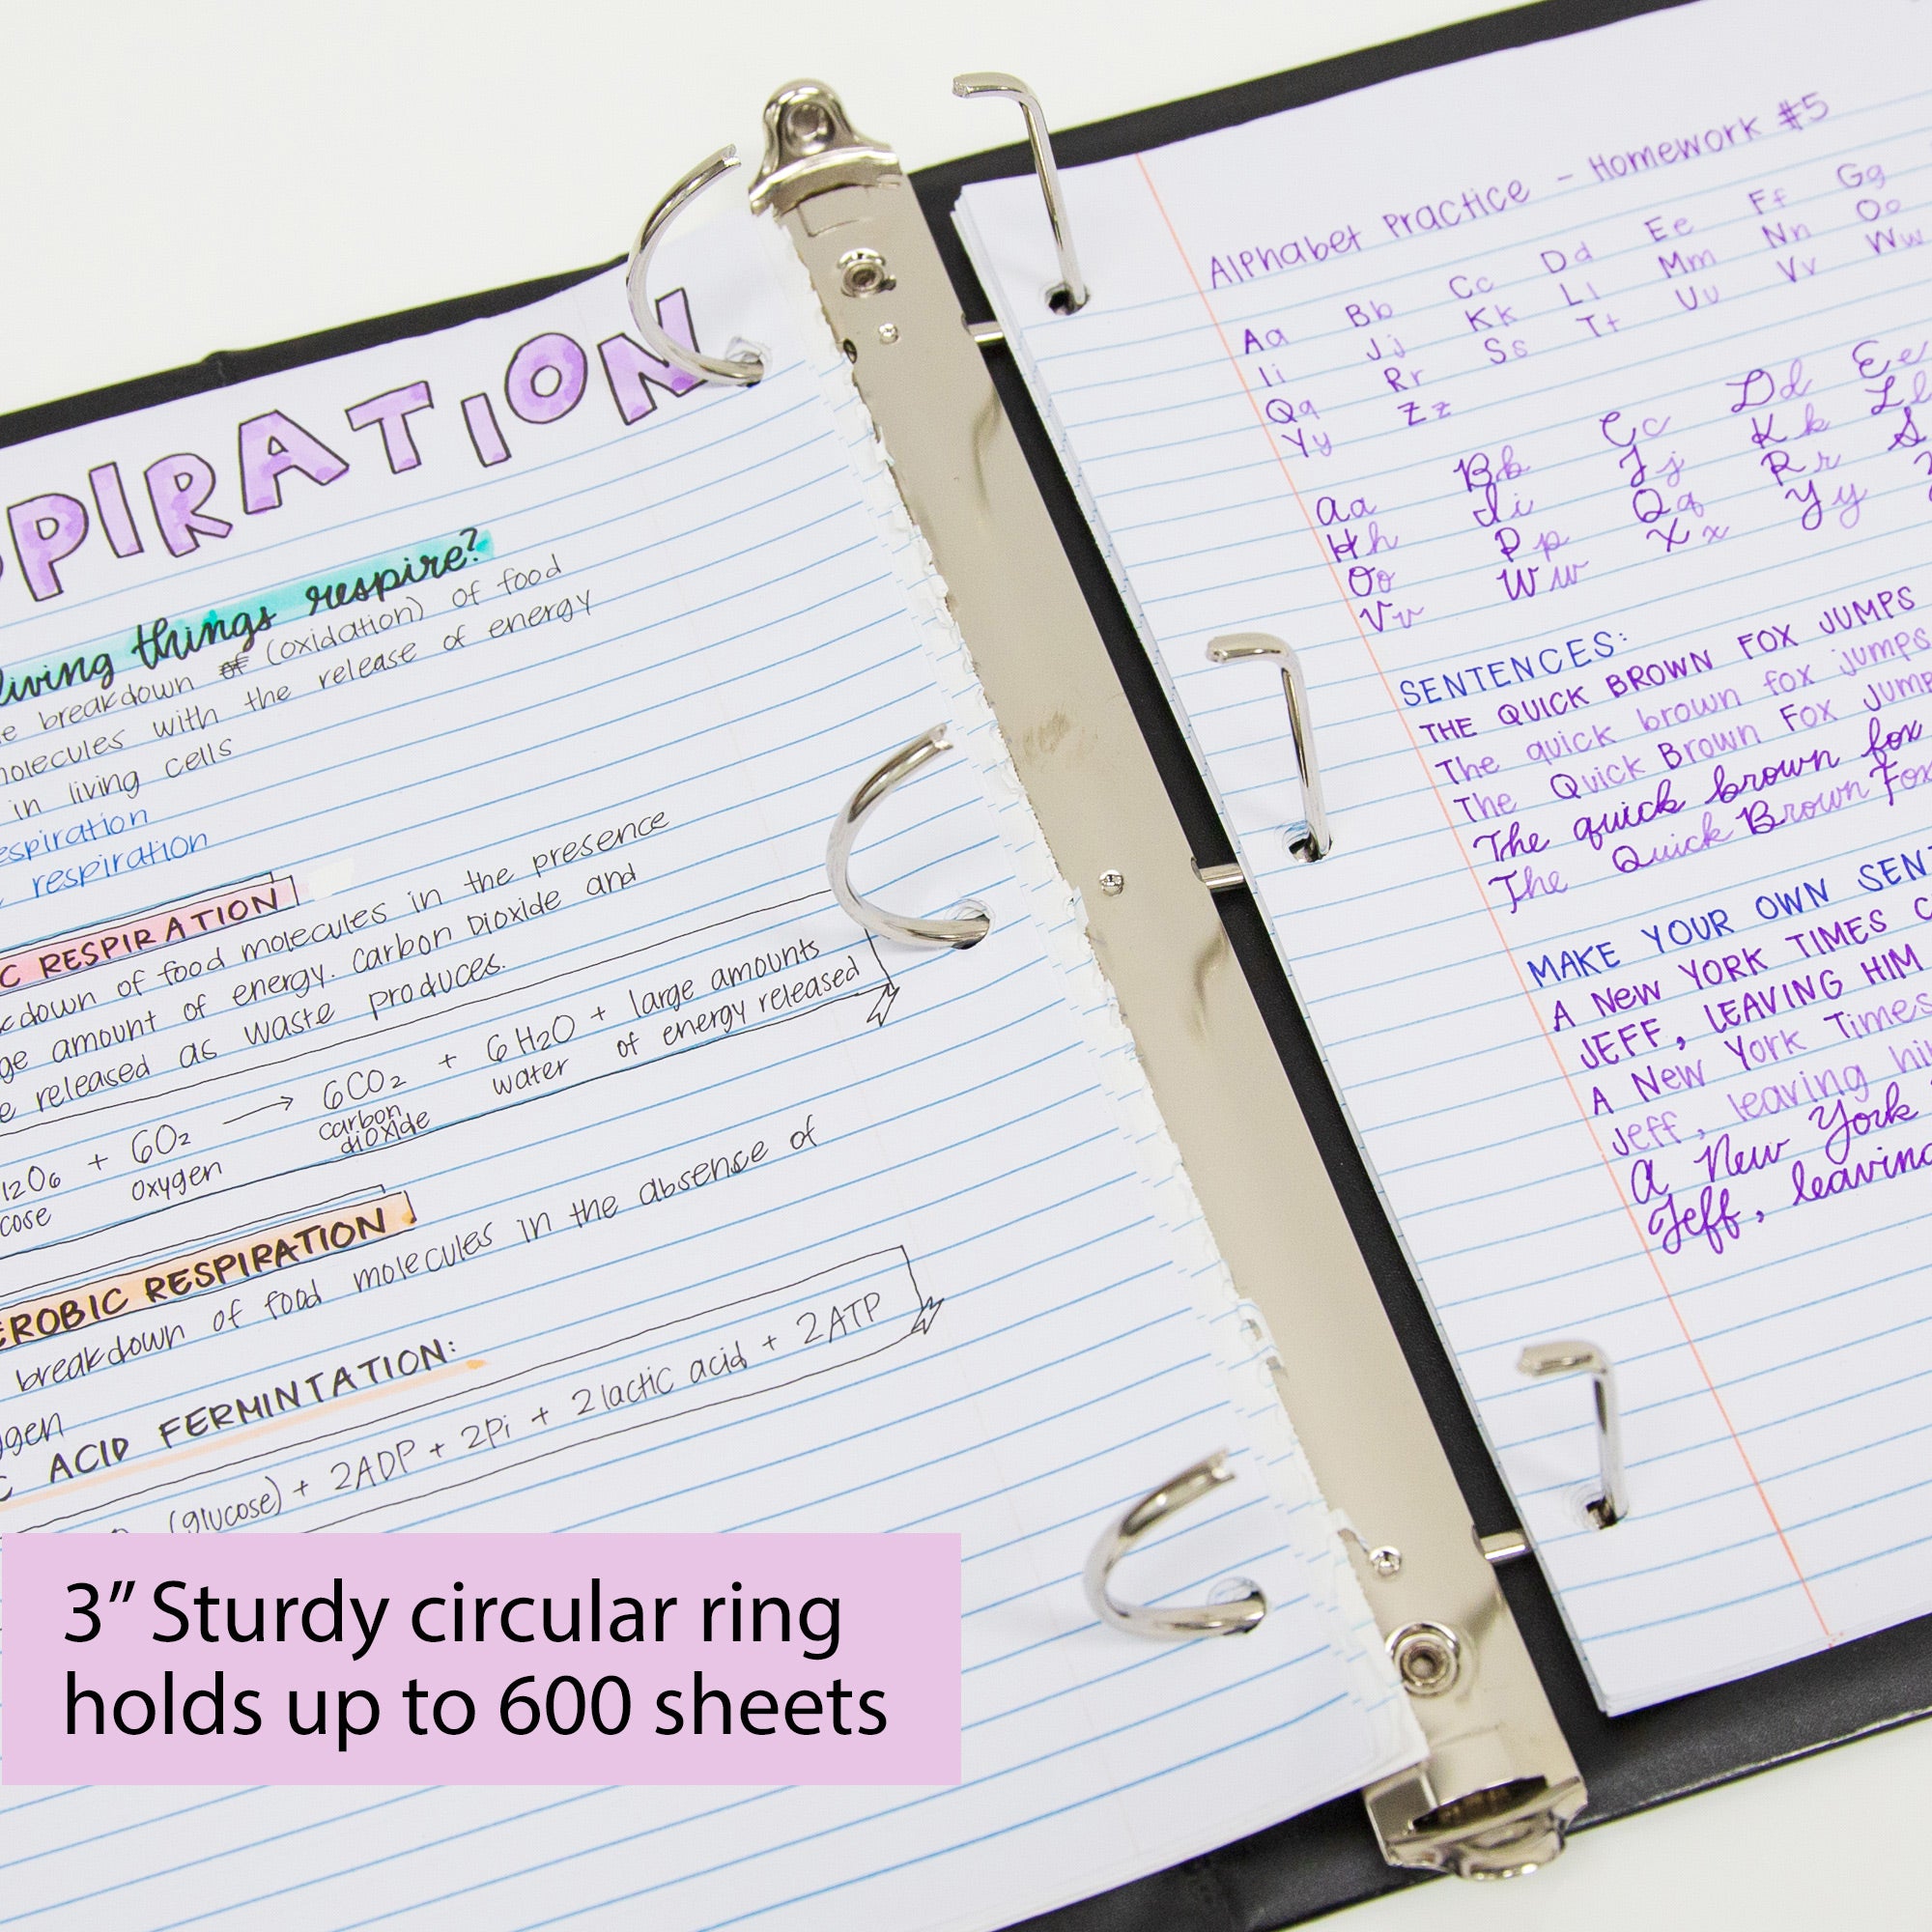 PIRATION
living things respire?
breakdown of (oxidation) of food
molecules with the release of energy
in living cells
respiration
respiration
C RESPIRATION
down of food molecules in the presence
amount of energy. Carbon Dioxide and
released as waste produces.
12O6 + 6O2 → 6CO2 + 6H2O + large amounts
cose oxygen carbon dioxide water of energy released
EROBIC RESPIRATION
breakdown of food molecules in the absence of
ygen
C ACID FERMINTATION:
(glucose) + 2ADP + 2Pi + 2lactic acid + 2ATP
Alphabet Practice - Homework #5
Aa Bb Cc Dd Ee Ff Gg
Ii Jj Kk Ll Mm Nn Oo
Qq Rr Ss Tt Uu Vv Ww
Yy Zz
Aa Bb Cc Dd Ee
Hh Ii Jj Kk Ll
Oo Pp Qq Rr S
Vv Ww Xx Yy
SENTENCES:
THE QUICK BROWN FOX JUMPS
The quick brown fox jumps
The Quick Brown Fox Jump
The quick brown fox
The Quick Brown Fox
MAKE YOUR OWN SENT
A NEW YORK TIMES C
JEFF, LEAVING HIM
A New York Times
Jeff, leaving hi
A New York
Jeff, leaving
3” Sturdy circular ring
holds up to 600 sheets